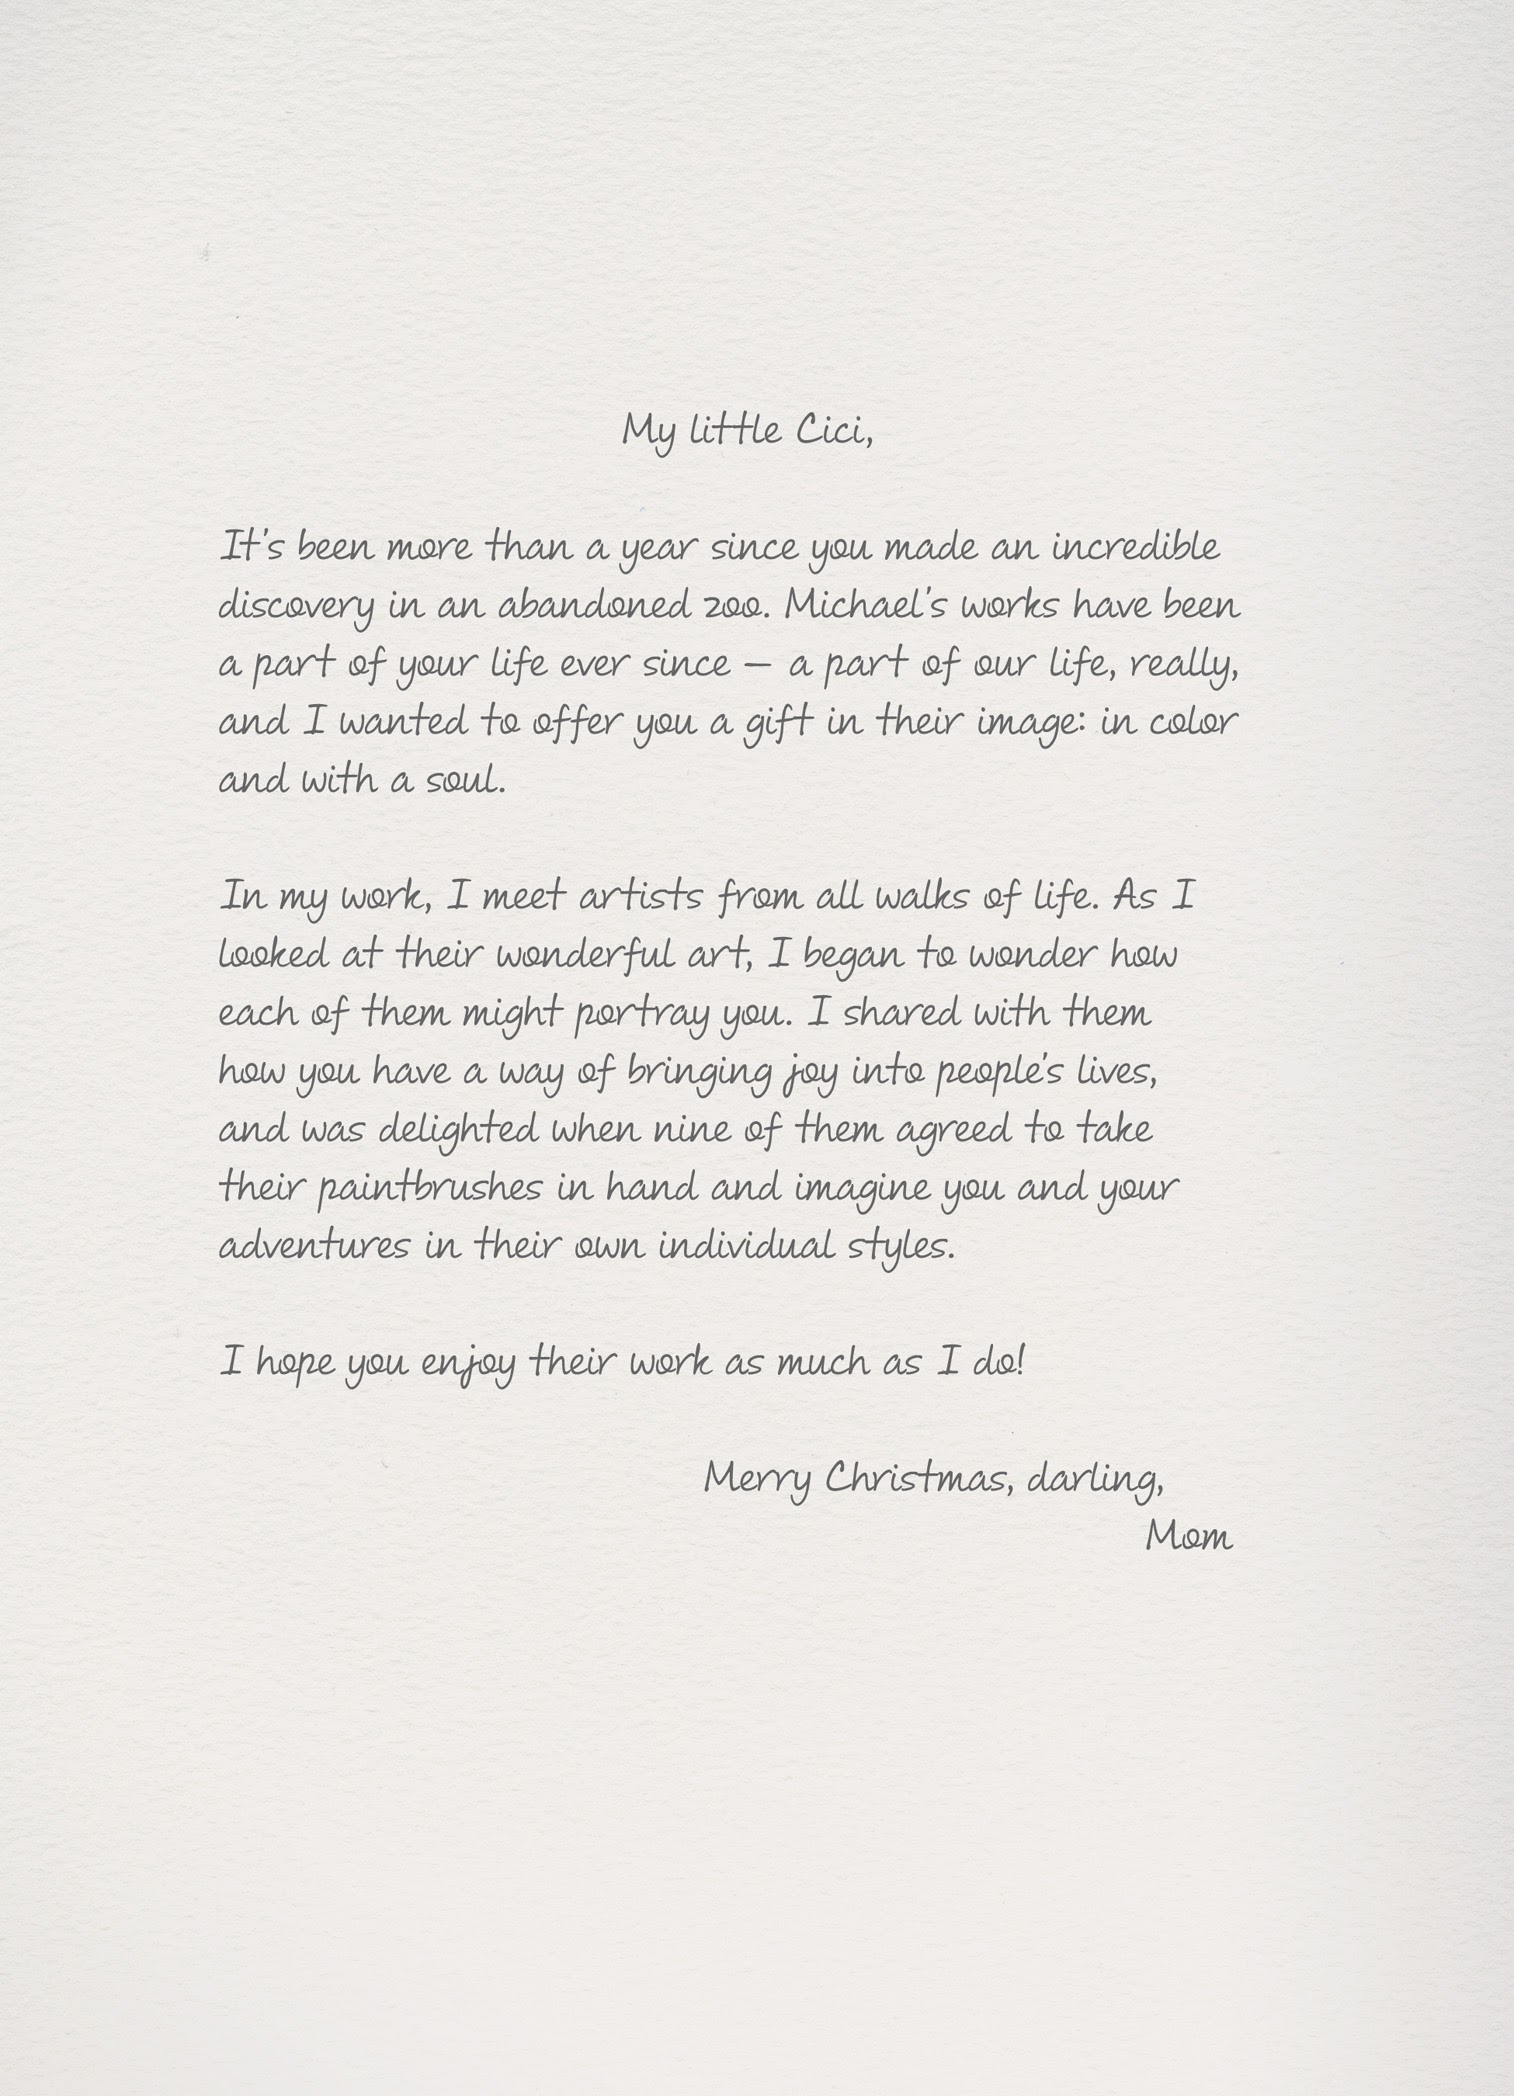 My little Cici,
It's been more than a year since you made an incredible
discovery in an abandoned zoo. Michael's works have been
a part of your life ever since – a part of our life, really,
and I wanted to offer you a gift in their image: in color
and with a soul.
In my work, I meet artists from all walks of life. As I
looked at their wonderful art, I began to wonder how
each of them might portray you. I shared with them
how you have a way of bringing joy into people's lives,
and was delighted when nine of them agreed to take
their paintbrushes in hand and imagine you and your
adventures in their own individual styles.
I hope you enjoy their work as much as I do!
Merry Christmas, darling,
Mom